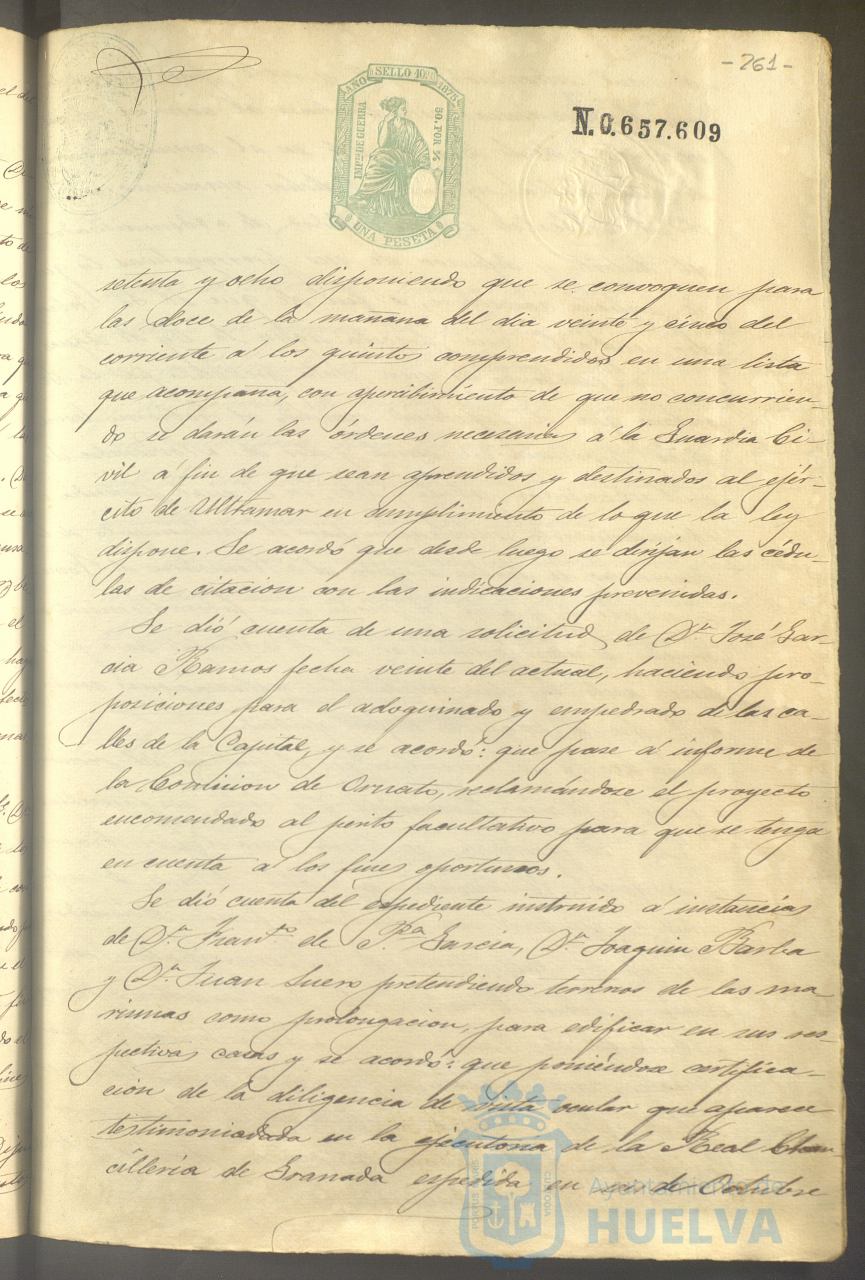 - 261 -
AÑO SELLO 10º 1875
IMPTO DE GUERRA
50 POR %
UNA PESETA
N. 0.657.609
setenta y ocho disponiendo que se convoquen para
las doce de la mañana del dia veinte y cinco del
corriente á los quintos comprendidos en una lista
que acompaña, con apercibimiento de que no concurrien-
do se darán las órdenes necesarias á la Guardia Ci-
vil á fin de que sean aprendidos y destinados al ejér-
cito de Ultramar en cumplimiento de lo que la ley
dispone. Se acordó que desde luego se dirijan las cédu-
las de citacion con las indicaciones prevenidas.
Se dió cuenta de una solicitud de Dn José Gar-
cia Ramos fecha veinte del actual, haciendo pro-
posiciones para el adoquinado y empedrado de las ca-
lles de la Capital, y se acordó: que pase á informe de
la Comision de Ornato, reclamándose el proyecto
encomendado al perito facultativo para que se tenga
en cuenta á los fines oportunos.
Se dió cuenta del expediente instruido á instancias
de Dn de García, Dn Joaquin Barba
y Dn Juan Suero pretendiendo terrenos de las ma
rismas como prolongacion, para edificar en sus res-
pectivas casas y se acordó: que poniéndose certifica-
cion de la diligencia de vista ocular que aparece
testimoniada en la ejecutoria de la Real Chan
cillería de Granada espedida en de Octubre
Ayuntamiento de
HUELVA